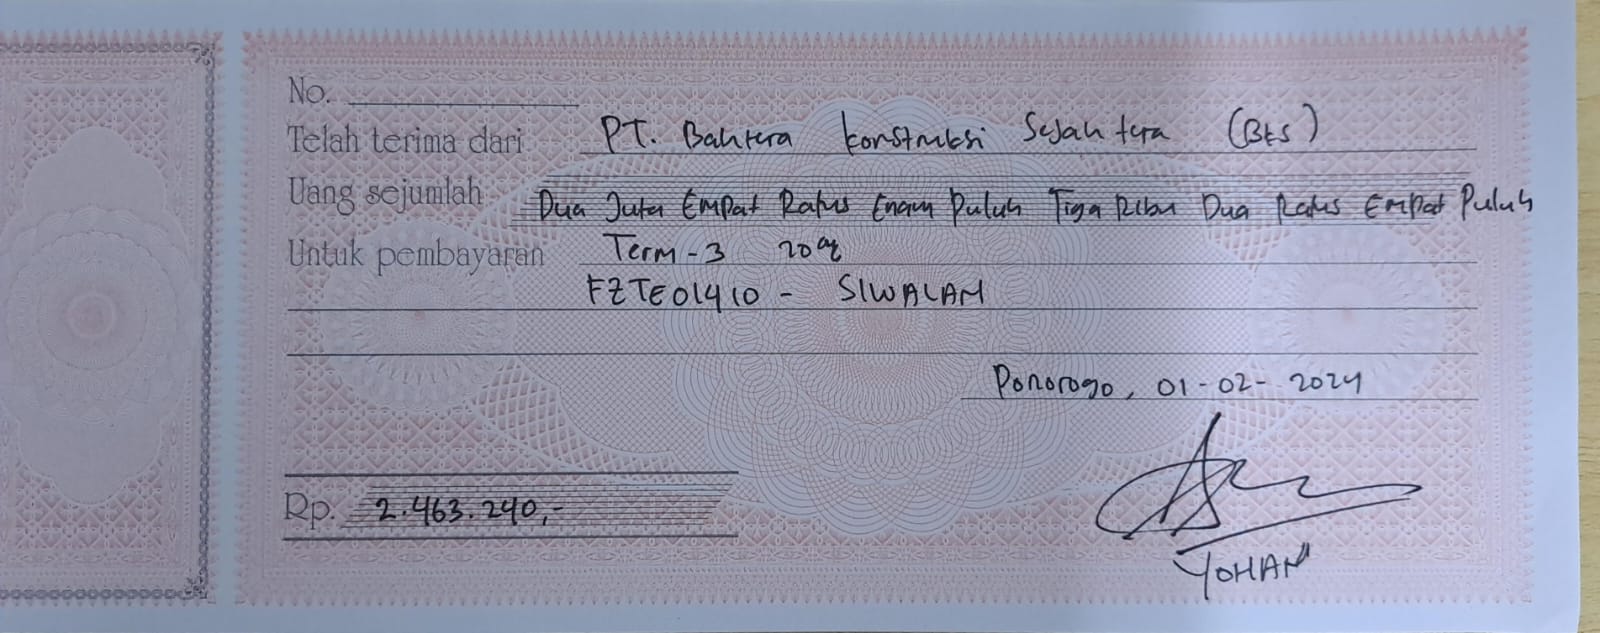 No.
Telah terima dari PT. Bahtera Konstruksi Sejahtera (BKS)
Uang sejumlah Dua Juta Empat Ratus Enam Puluh Tiga Ribu Dua Ratus Empat Puluh
Untuk pembayaran Term-3 20%
FZTE01410 - SIWALAN
Ponorogo, 01-02-2024
Rp. 2.463.240,-
YOHAN